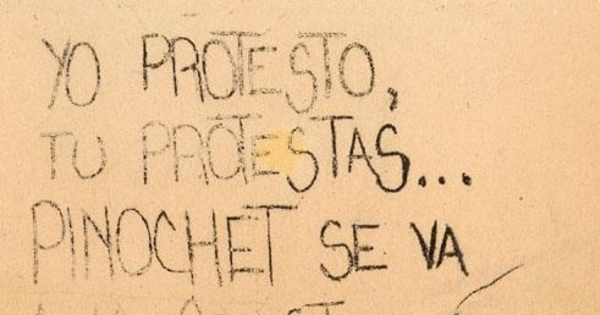 YO PROTESTO,
TU PROTESTAS...
PINOCHET SE VA